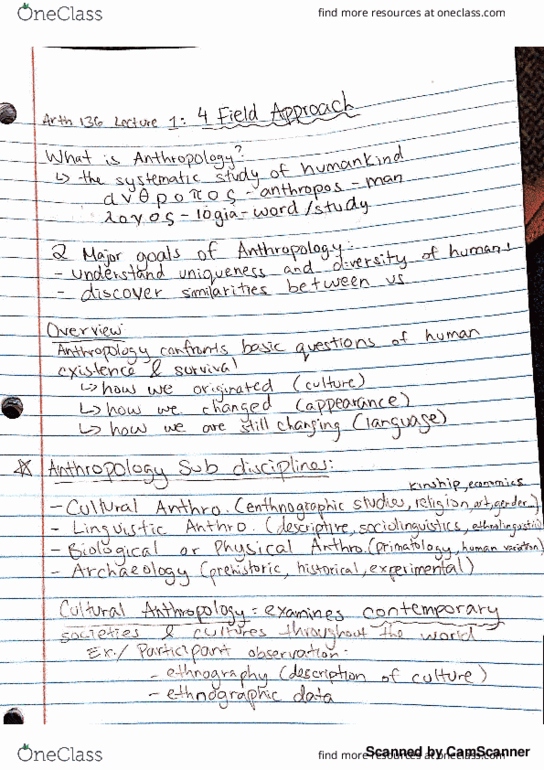 OneClass
find more resources at oneclass.com
Arth 136 Lecture 1: 4 Field Approach
What is Anthropology?
↳ the systematic study of humankind
ανθροπος - anthropos - man
λογος - lógia - word/study
2 Major goals of Anthropology:
- understand uniqueness and diversity of humans
- discover similarities between us
Overview
Anthropology confronts basic questions of human
existence & survival
↳ how we originated (culture)
↳ how we changed (appearance)
↳ how we are still changing (language)
☆ Anthropology Sub disciplines:
kinship, economics
- Cultural Anthro. (enthnographic studies, religion, art, gender)
- Linguistic Anthro. (descriptive, sociolinguistics, ethnolinguistics)
- Biological or Physical Anthro. (primatology, human variation)
- Archaeology (prehistoric, historical, experimental)
Cultural Anthropology = examines contemporary
societies & cultures throughout the world
Ex./ Participant observation.
- ethnography (description of culture)
- ethnographic data
Scanned by CamScanner
OneClass
find more resources at oneclass.com